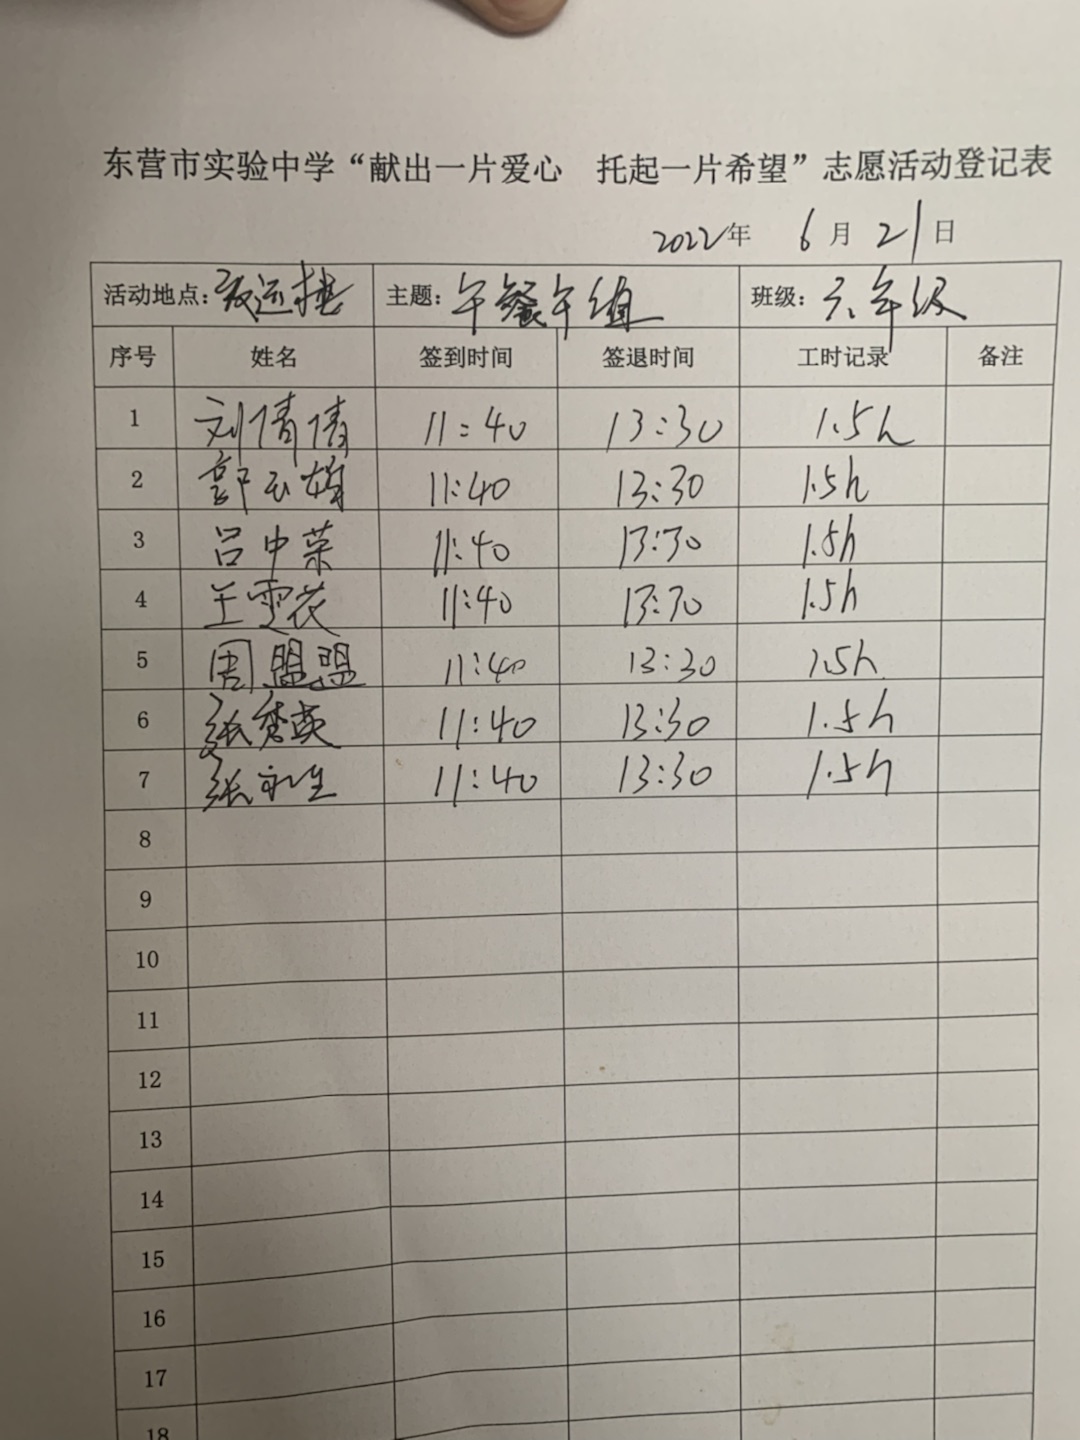 东营市实验中学“献出一片爱心 托起一片希望”志愿活动登记表
2022年 6月21日
活动地点:致远楼 主题:午餐午值 班级:六年级
序号 姓名 签到时间 签退时间 工时记录 备注
1 刘倩倩 11:40 13:30 1.5h
2 郭 11:40 13:30 1.5h
3 吕中荣 11:40 13:30 1.5h
4 王雪花 11:40 13:30 1.5h
5 周盟盟 11:40 13:30 1.5h
6 张秀英 11:40 13:30 1.5h
7 张永生 11:40 13:30 1.5h
8
9
10
11
12
13
14
15
16
17
18